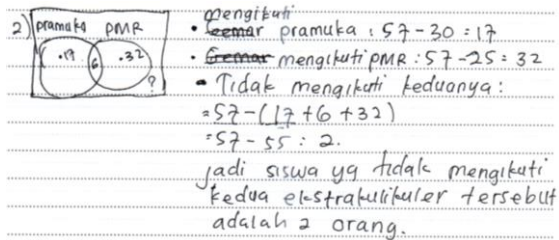 2) pramuka PMR
.17 6 .32
?
mengikuti
• pramuka : 57 - 30 = 17
• mengikuti PMR : 57 - 25 = 32
• Tidak mengikuti keduanya :
= 57 - (17 + 6 + 32)
= 57 - 55 : 2.
jadi siswa yg tidak mengikuti
kedua ekstrakulikuler tersebut
adalah 2 orang.